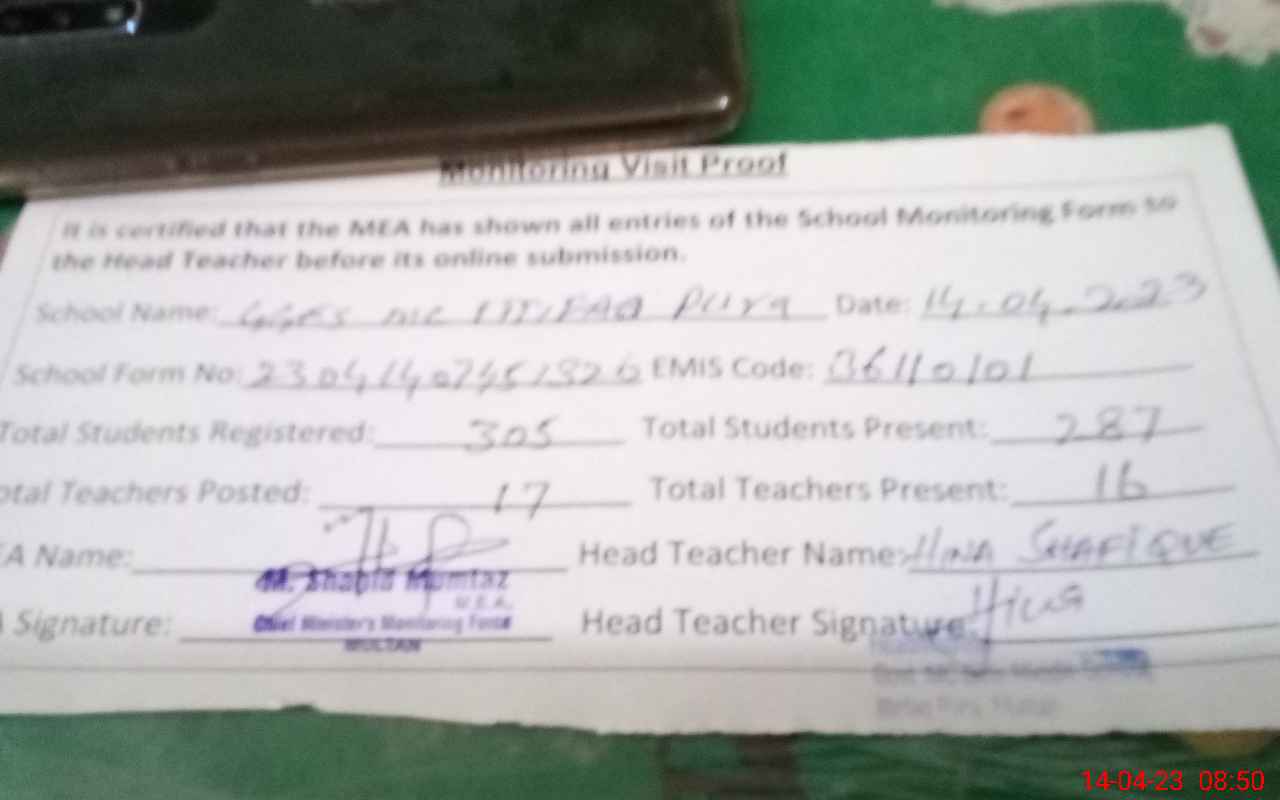 Monitoring Visit Proof
It is certified that the MEA has shown all entries of the School Monitoring Form to
the Head Teacher before its online submission.
School Name: GGES MC ITTIFAQ PURA Date: 14.04.2023
School Form No: EMIS Code: 36110101
Total Students Registered: 305 Total Students Present: 287
otal Teachers Posted: 17 Total Teachers Present: 16
EA Name: Head Teacher Name: HINA SHAFIQUE
M. Shahid Mumtaz
M.E.A.
A Signature: Chief Minister's Monitoring Force Head Teacher Signature: Hina
MULTAN
14-04-23 08:50